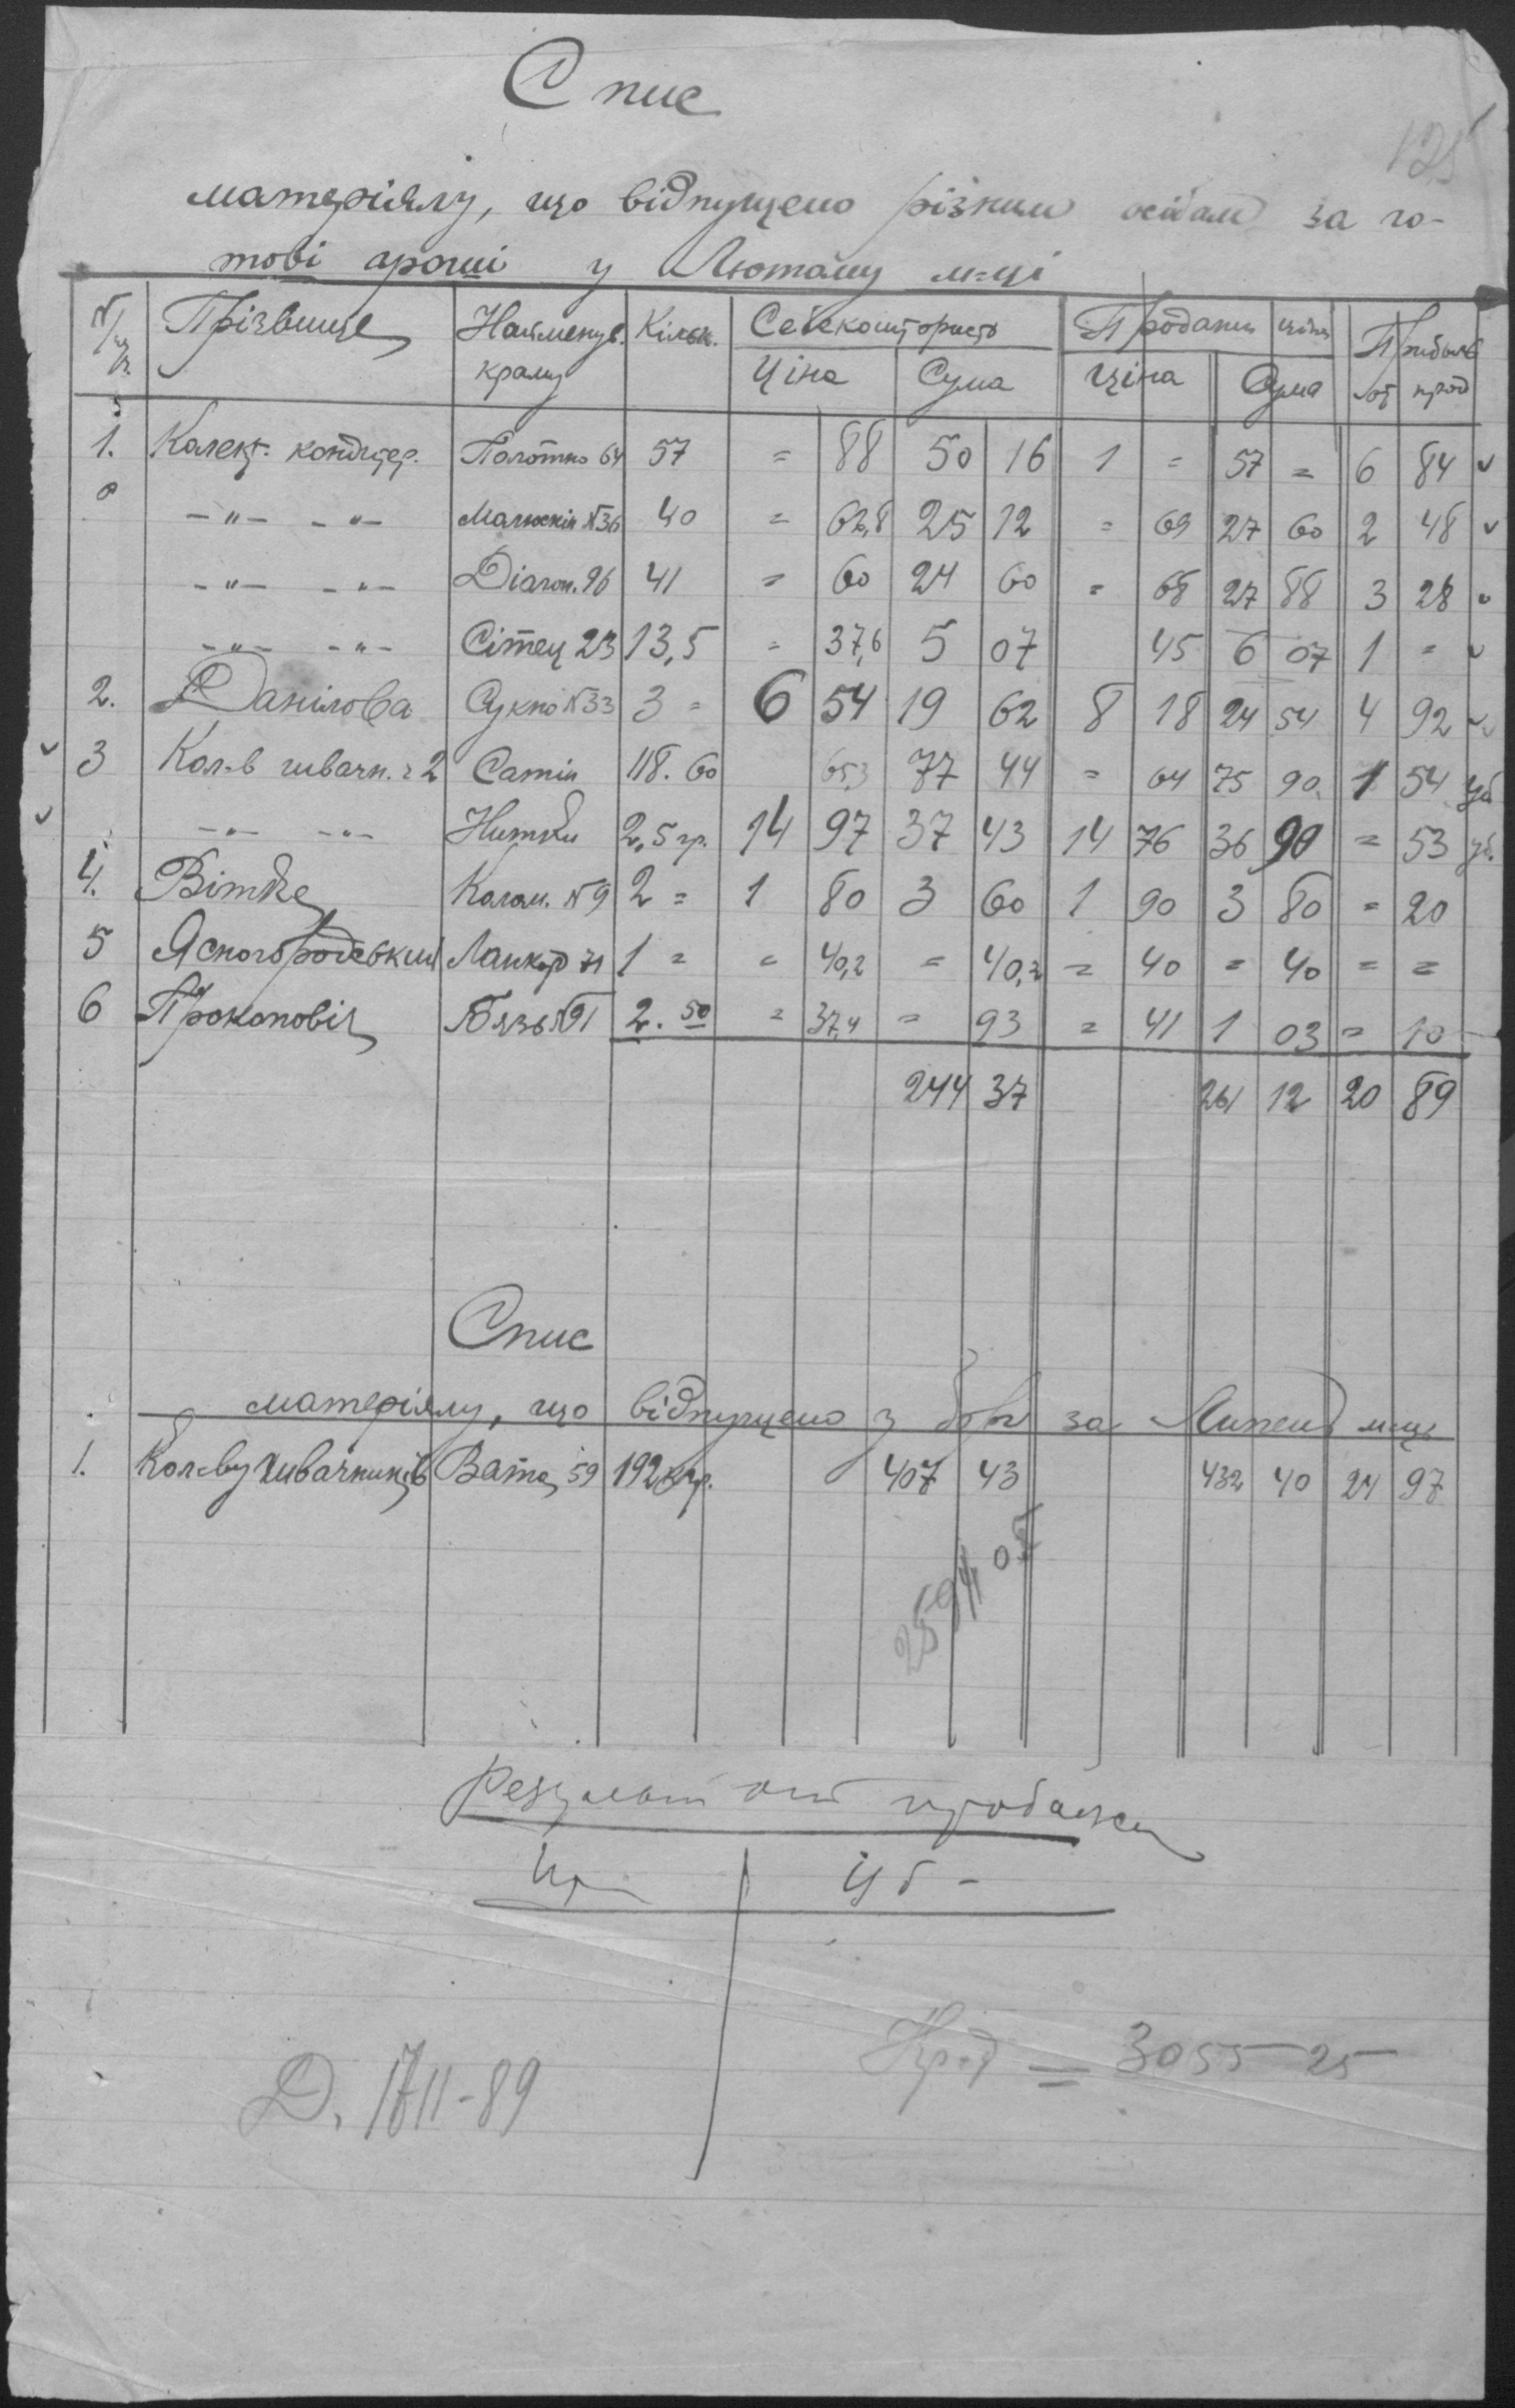 Спис
125
матеріялу, що відпущено різним особам за го-
тові гроші у Лютому м-ці
№ п/п. Прізвище Найменув. краму Кільк. Собекоштористь Продажн ціна Прибыль
Ціна Сума Ціна Сума от прод
1. Колект. кондитер. Полотно 64 57 = 88 50 16 1 = 57 = 6 84 ✓
-"- -"- Малюскін №36 40 = 62,8 25 12 = 69 27 60 2 48 ✓
-"- -"- Діагон. 96 41 = 60 24 60 = 68 27 88 3 28 ✓
-"- -"- Сітец 23 13,5 = 37,6 5 07 45 6 07 1 = ✓
2. Данілова Сукно №33 3 = 6 54 19 62 8 18 24 54 4 92 ✓
✓ 3 Кол-в швачн. 2 Сатін 118. 60 65,3 77 44 = 64 75 90 1 54 уб
✓ -"- -"- Нитки 2,5 гр. 14 97 37 43 14 76 36 90 = 53 уб.
4. Вітке Колом. №9 2 = 1 80 3 60 1 90 3 80 = 20
5 Ясногородський Ланкорд 71 1 = = 40,2 = 40,2 = 40 = 40 = =
6 Прокопович Бязь 91 2. 50 = 37,4 = 93 = 41 1 03 = 10
244 37 261 12 20 89
Спис
матеріялу, що відпущено з за Липень м-ць
1. Кол-ву швачників Вата 59 192 кгр. 407 43 432 40 24 97
2594 05
Результат от продажи
Пр Уб -
Д. 1711-89
Кред = 3055-25